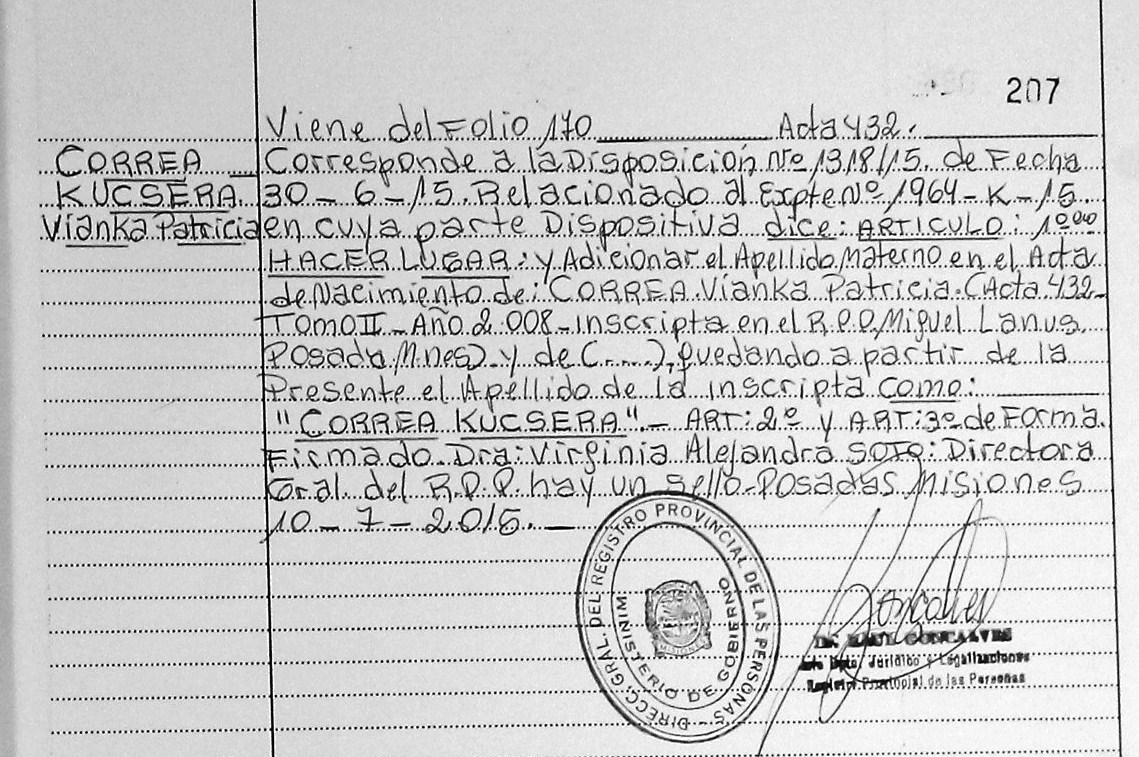 207
Viene del Folio 170 Acta 432.
CORREA
KUCSERA
Vianka Patricia
Corresponde a la Disposición Nº 1318/15. de Fecha
30-6-15. Relacionado al Expte Nº 1964-K-15
en cuya parte Dispositiva dice: ARTICULO: 1º
HACER LUGAR: y Adicionar el Apellido Materno en el Acta
de Nacimiento de: CORREA Vianka Patricia (Acta 432-
Tomo II - Año 2.008 - inscripta en el R.P.P. Miguel Lanus,
Posadas Mnes) y de (.....), quedando a partir de la
Presente el Apellido de la inscripta como:
"CORREA KUCSERA".- ART: 2º y ART: 3º de Forma.
Firmado Dra: Virginia Alejandra SOTO: Directora
Gral. del R.P.P. hay un sello-Posadas Misiones
10-7-2015.
DIRECC. GRAL. DEL REGISTRO PROVINCIAL DE LAS PERSONAS
MINISTERIO DE GOBIERNO
MISIONES
Goncalves
Dr. RAUL GONCALVES
Dpto. Jurídico y Legalizaciones
Registro Provincial de las Personas